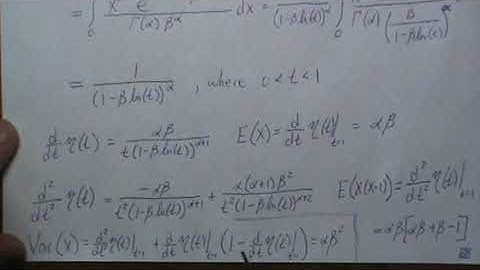 = ∫₀ x e / Γ(α) β^α dx = 1/(1-β ln(t))^α ∫₀ x / Γ(α) (β/(1-β ln(t)))^α
= 1/(1-β ln(t))^α , where 0 < t < 1
d/dt η(t) = αβ / t(1-β ln(t))^(α+1) E(X) = d/dt η(t)|_(t=1) = αβ
d²/dt² η(t) = -αβ / t²(1-β ln(t))^(α+1) + α(α+1)β² / t²(1-β ln(t))^(α+2) E(X(X-1)) = d²/dt² η(t)|_(t=1)
= αβ[αβ+β-1]
Var(X) = d²/dt² η(t)|_(t=1) + d/dt η(t)|_(t=1) (1 - d/dt η(t)|_(t=1)) = αβ²